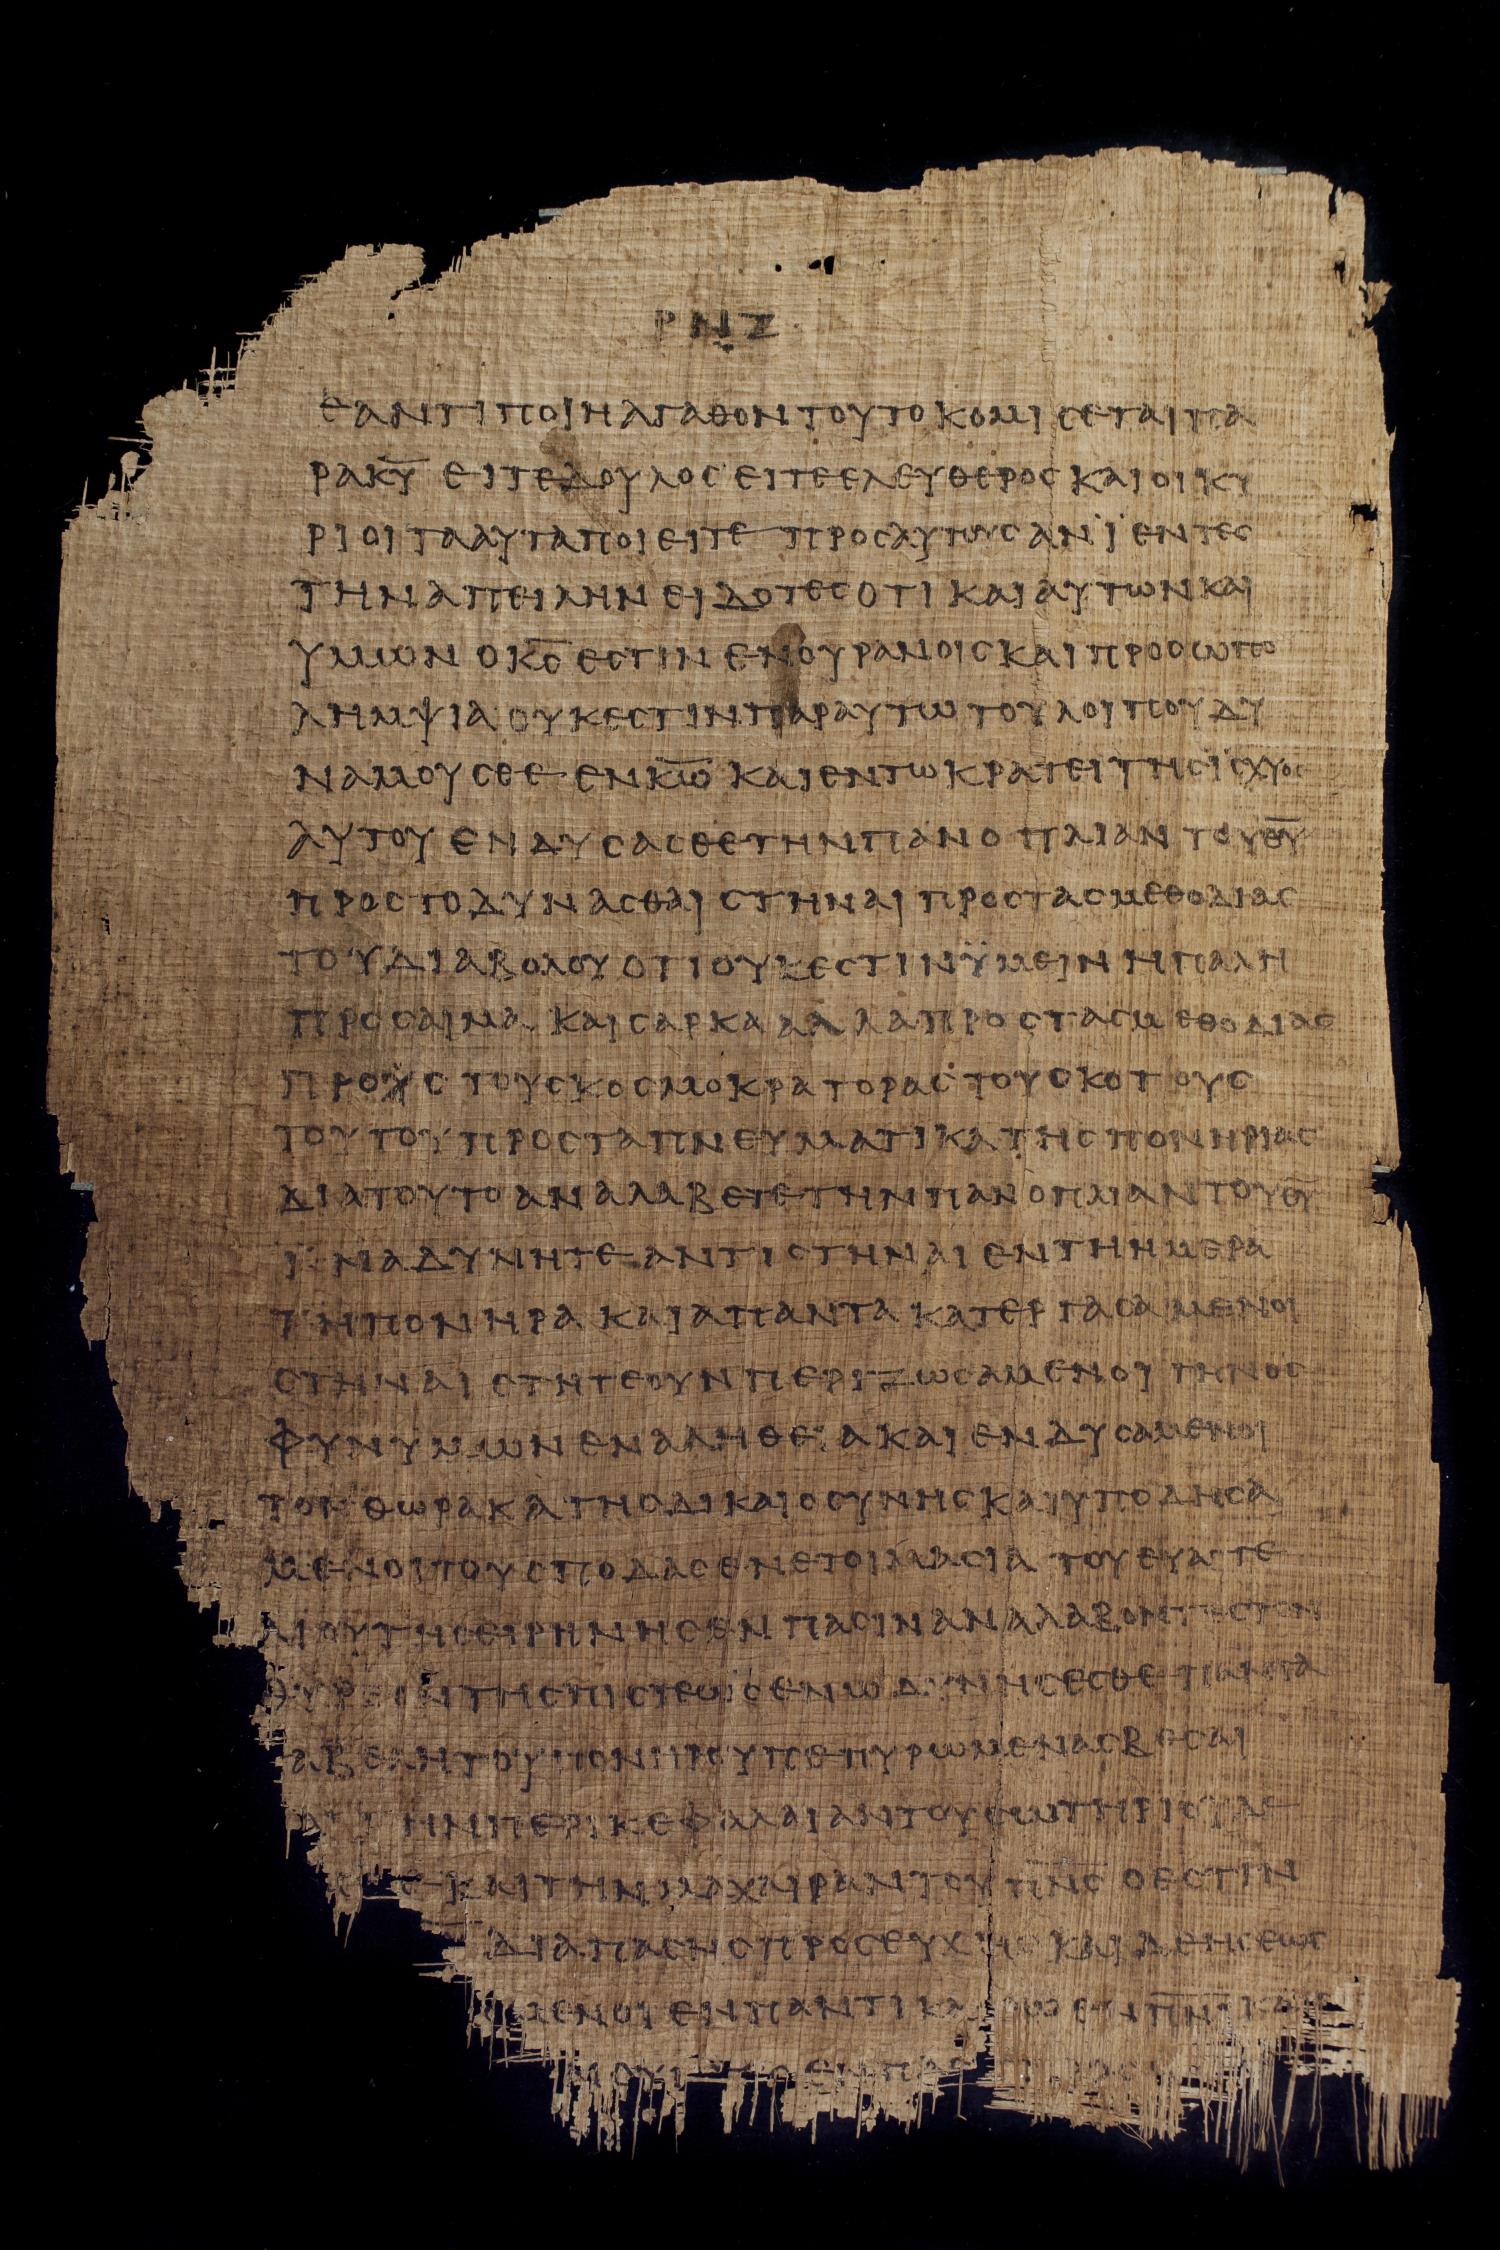 ΡΝΖ
ΕΑΝΤΙΠΟΙΗΑΓΑΘΟΝΤΟΥΤΟΚΟΜΙϹΕΤΑΙΠΑ
ΡΑΚ̅Υ̅ ΕΙΤΕΔΟΥΛΟϹΕΙΤΕΕΛΕΥΘΕΡΟϹΚΑΙΟΙΚΥ
ΡΙΟΙΤΑΑΥΤΑΠΟΙΕΙΤΕ ΠΡΟϹΑΥΤΟΥϹΑΝΪΕΝΤΕϹ
ΤΗΝΑΠΕΙΛΗΝΕΙΔΟΤΕϹΟΤΙΚΑΙΑΥΤΩΝΚΑΙ
ΥΜΩΝΟΚ̅Ϲ̅ΕϹΤΙΝΕΝΟΥΡΑΝΟΙϹΚΑΙΠΡΟϹΩΠΟ
ΛΗΜΨΙΑΟΥΚΕϹΤΙΝΠΑΡΑΥΤΩΤΟΥΛΟΙΠΟΥΔΥ
ΝΑΜΟΥϹΘΕΕΝΚ̅Ω̅ΚΑΙΕΝΤΩΚΡΑΤΕΙΤΗϹΪϹΧΥΟϹ
ΑΥΤΟΥΕΝΔΥϹΑϹΘΕΤΗΝΠΑΝΟΠΛΙΑΝΤΟΥΘ̅Υ̅
ΠΡΟϹΤΟΔΥΝΑϹΘΑΙϹΤΗΝΑΙΠΡΟϹΤΑϹΜΕΘΟΔΙΑϹ
ΤΟΥΔΙΑΒΟΛΟΥΟΤΙΟΥΚΕϹΤΙΝΫΜΕΙΝΗΠΑΛΗ
ΠΡΟϹΑΙΜΑ ΚΑΙϹΑΡΚΑΑΛΛΑΠΡΟϹΤΑϹΜΕΘΟΔΙΑϹ
ΠΡΟϹΤΟΥϹΚΟϹΜΟΚΡΑΤΟΡΑϹΤΟΥϹΚΟΤΟΥϹ
ΤΟΥΤΟΥΠΡΟϹΤΑΠΝΕΥΜΑΤΙΚΑΤΗϹΠΟΝΗΡΙΑϹ
ΔΙΑΤΟΥΤΟΑΝΑΛΑΒΕΤΕΤΗΝΠΑΝΟΠΛΙΑΝΤΟΥΘ̅Υ̅
ΪΝΑΔΥΝΗΤΕΑΝΤΙϹΤΗΝΑΙΕΝΤΗΗΜΕΡΑ
ΤΗΠΟΝΗΡΑΚΑΙΑΠΑΝΤΑΚΑΤΕΡΓΑϹΑΜΕΝΟΙ
ϹΤΗΝΑΙϹΤΗΤΕΟΥΝΠΕΡΙΖΩϹΑΜΕΝΟΙΤΗΝΟϹ
ΦΥΝΥΜΩΝΕΝΑΛΗΘΕΙΑΚΑΙΕΝΔΥϹΑΜΕΝΟΙ
ΤΟΝΘΩΡΑΚΑΤΗϹΔΙΚΑΙΟϹΥΝΗϹΚΑΙΥΠΟΔΗϹΑ
ΜΕΝΟΙΤΟΥϹΠΟΔΑϹΕΝΕΤΟΙΜΑϹΙΑΤΟΥΕΥΑΓΓΕ
ΛΙΟΥΤΗϹΕΙΡΗΝΗϹΕΝΠΑϹΙΝΑΝΑΛΑΒΟΝΤΕϹΤΟΝ
ΘΥΡΕΟΝΤΗϹΠΙϹΤΕΩϹΕΝΩΔΥΝΗϹΕϹΘΕΠΑΝΤΑ
ΑΒΕΛΗΤΟΥΠΟΝΗΡΟΥΠΕΠΥΡΩΜΕΝΑϹΒΕϹΑΙ
ΤΗΝΠΕΡΙΚΕΦΑΛΑΙΑΝΤΟΥϹΩΤΗΡΙΟΥΔΕ
ΚΑΙΤΗΝΜΑΧΑΙΡΑΝΤΟΥΠ̅Ν̅Ϲ̅ΟΕϹΤΙΝ
ΔΙΑΠΑϹΗϹΠΡΟϹΕΥΧΗϹΚΑΙΔΕΗϹΕΩϹ
ΜΕΝΟΙΕΝΠΑΝΤΙΚΑΙΡΩΕΝΠ̅Ν̅Ι̅